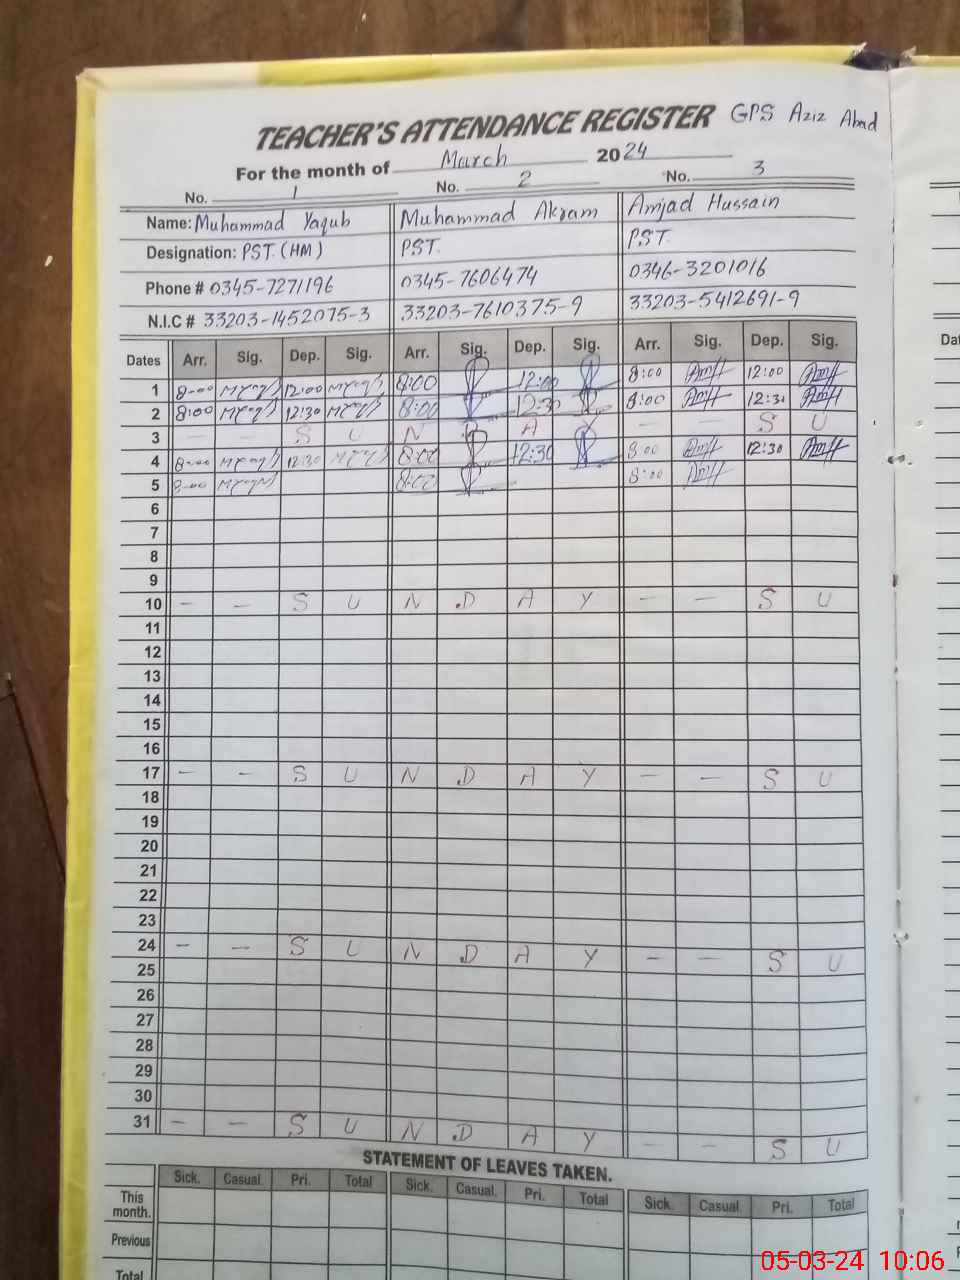 TEACHER'S ATTENDANCE REGISTER GPS Aziz Abad
For the month of March 2024
No. 1 No. 2 No. 3
Name: Muhammad Yaqub Muhammad Akram Amjad Hussain
Designation: PST. (HM) PST. PST.
Phone # 0345-7271196 0345-7606474 0346-3201016
N.I.C # 33203-1452075-3 33203-7610375-9 33203-5412691-9
Dates Arr. Sig. Dep. Sig. Arr. Sig. Dep. Sig. Arr. Sig. Dep. Sig.
1 8-00 12:00 8:00 12:00 8:00 12:00
2 8:00 12:30 8:00 12:30 8:00 12:30
3 - - S U N D A Y - - S U
4 8-00 12:30 8:00 12:30 8:00 12:30
5 8-00 8:00 8:00
6
7
8
9
10 - - S U N D A Y - - S U
11
12
13
14
15
16
17 - - S U N D A Y - - S U
18
19
20
21
22
23
24 - - S U N D A Y - - S U
25
26
27
28
29
30
31 - - S U N D A Y - - S U
STATEMENT OF LEAVES TAKEN.
Sick. Casual. Pri. Total Sick. Casual. Pri. Total Sick. Casual. Pri. Total
This month.
Previous
Total
05-03-24 10:06